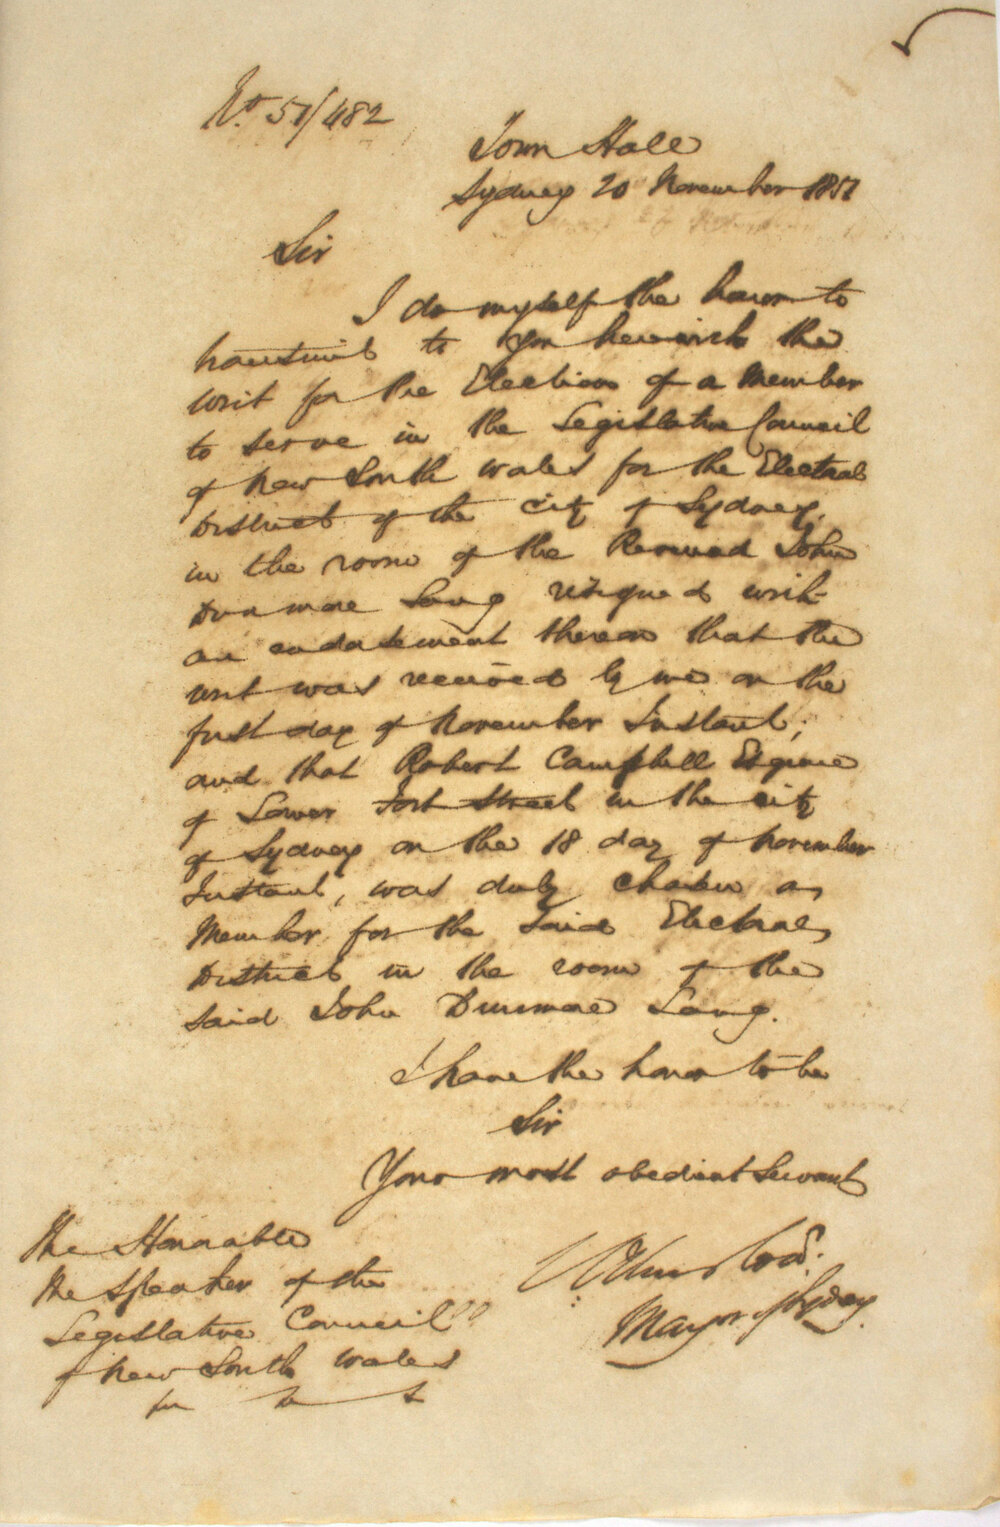 No. 51/482
Town Hall
Sydney 20 November 1851
Sir
I do myself the honor to
transmit to you herewith the
writ for the Election of a Member
to serve in the Legislative Council
of New South Wales for the Electoral
District of the City of Sydney,
in the room of the Reverend John
Dunmore Lang resigned with
an endorsement thereon that the
writ was received by me on the
first day of November Instant;
and that Robert Campbell Esquire
of Lower Fort Street in the City
of Sydney on the 18 day of November
Instant, was duly chosen as
Member for the said Electoral
District in the room of the
said John Dunmore Lang.
I have the honor to be
Sir
Your most obedient Servant
Mayor of Sydney.
The Honorable
The Speaker of the
Legislative Council
of New South Wales